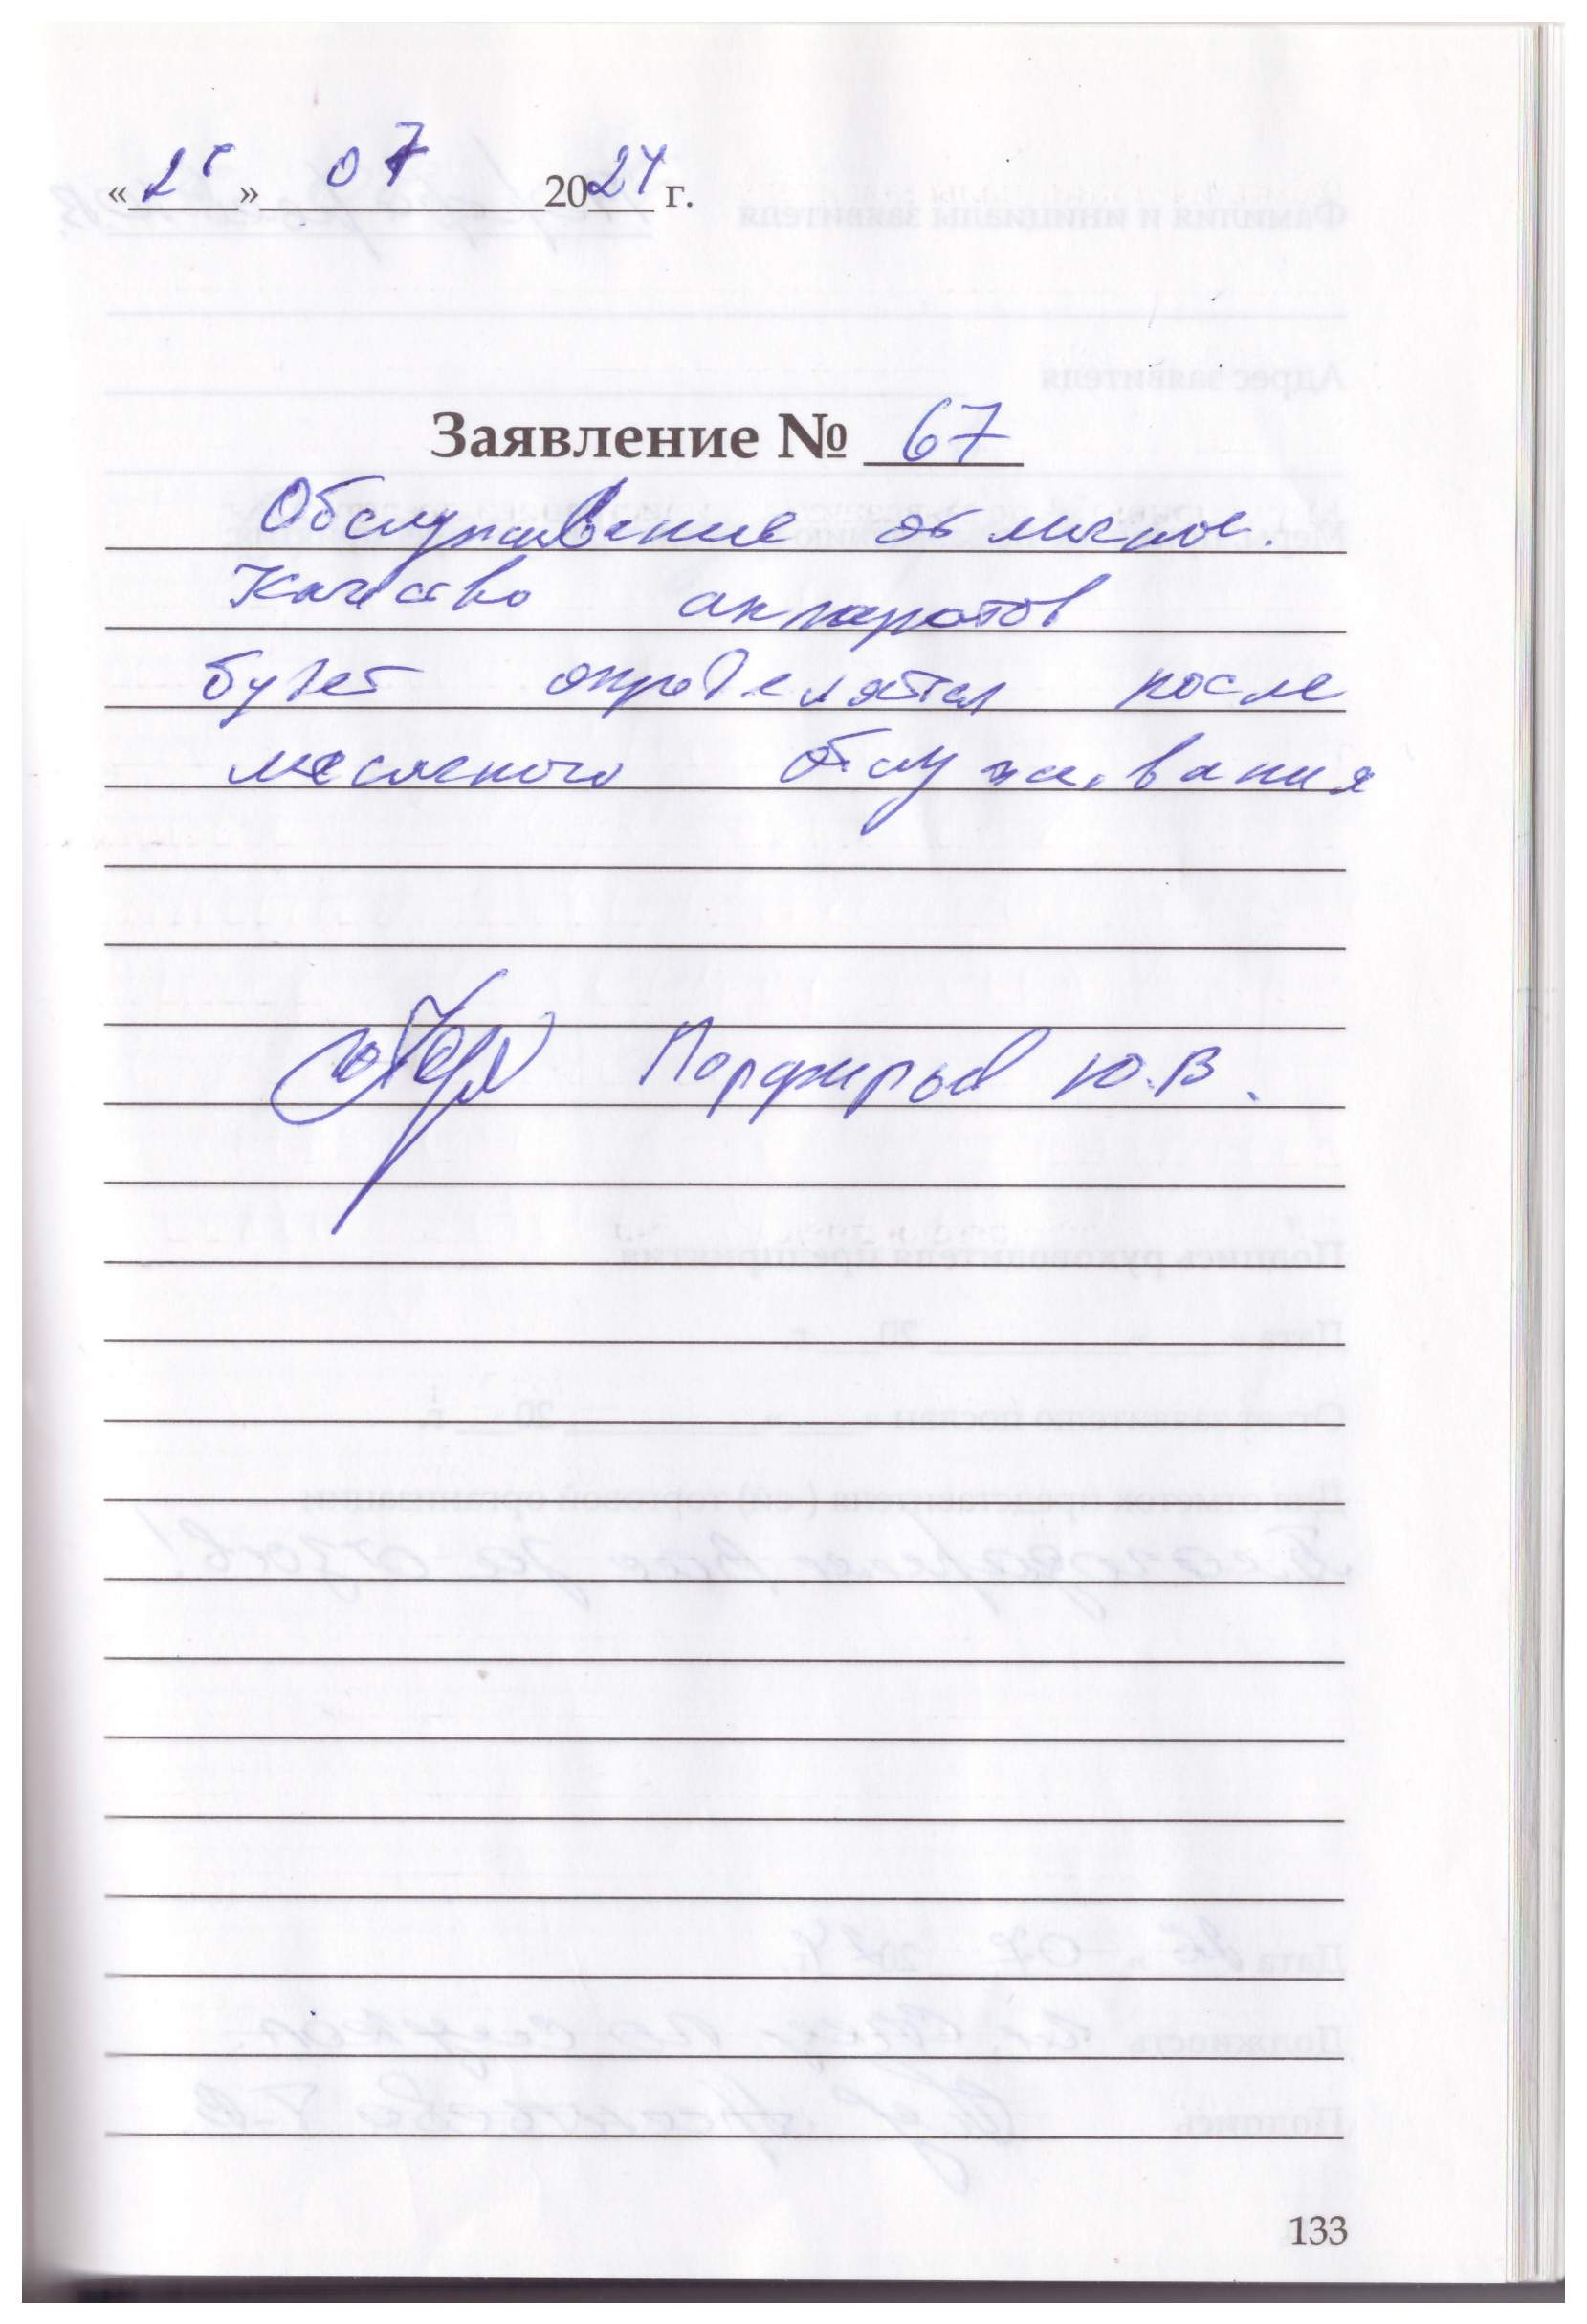 «25» 07 2024 г.
Заявление № 67
Обслуживание отличное.
Качество аппаратов
будет определятся после
месячного обслуживания
Порфирьев Ю.В.
133